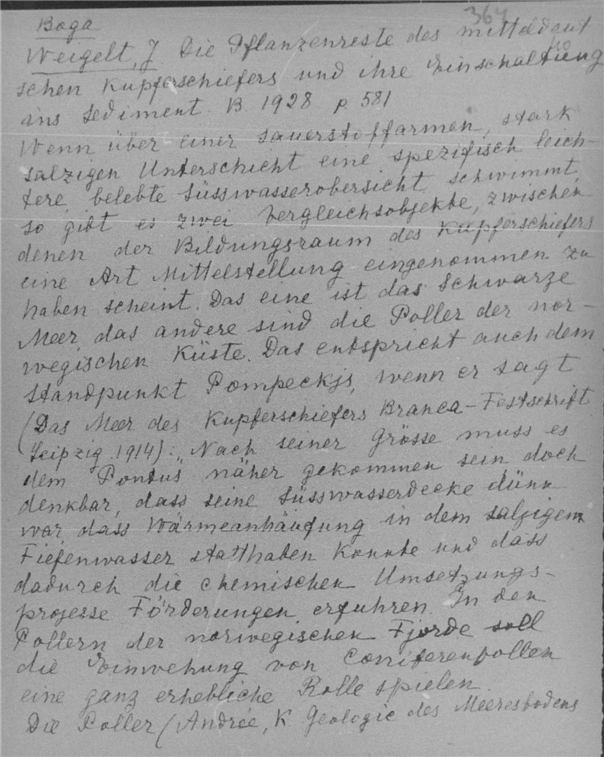 Boga 364
Weigelt, J Die Pflanzenreste des mitteldeut
schen Kupferschiefers und ihre Einschaltung
ins Sediment. B. 1928 p 581
Wenn über einer sauerstoffarmen, stark
salzigen Unterschicht eine spezifisch leich-
tere belebte Süsswasserobersicht schwimmt,
so gibt es zwei Vergleichsobjekte, zwischen
denen der Bildungsraum des Kupferschiefers
eine Art Mittelstellung eingenommen zu
haben scheint. Das eine ist das Schwarze
Meer, das andere sind die Poller der nor-
wegischen Küste. Das entspricht auch dem
Standpunkt Pompeckjs, wenn er sagt
(Das Meer des Kupferschiefers Branca-Festschrift
Leipzig 1914): „Nach seiner Grösse muss es
dem Pontus näher gekommen sein doch
denkbar, dass seine Süsswasserdecke dünn
war, dass Wärmeanhäufung in dem salzigem
Tiefenwasser statthaben konnte und dass
dadurch die chemischen Umsetzungs-
prozesse Förderungen erfuhren. In den
Pollern der norwegischen Fjorde soll
die Einwehung von Coniferenpollen
eine ganz erhebliche Rolle spielen.
Die Poller (Andrée, K. Geologie des Meeresbodens